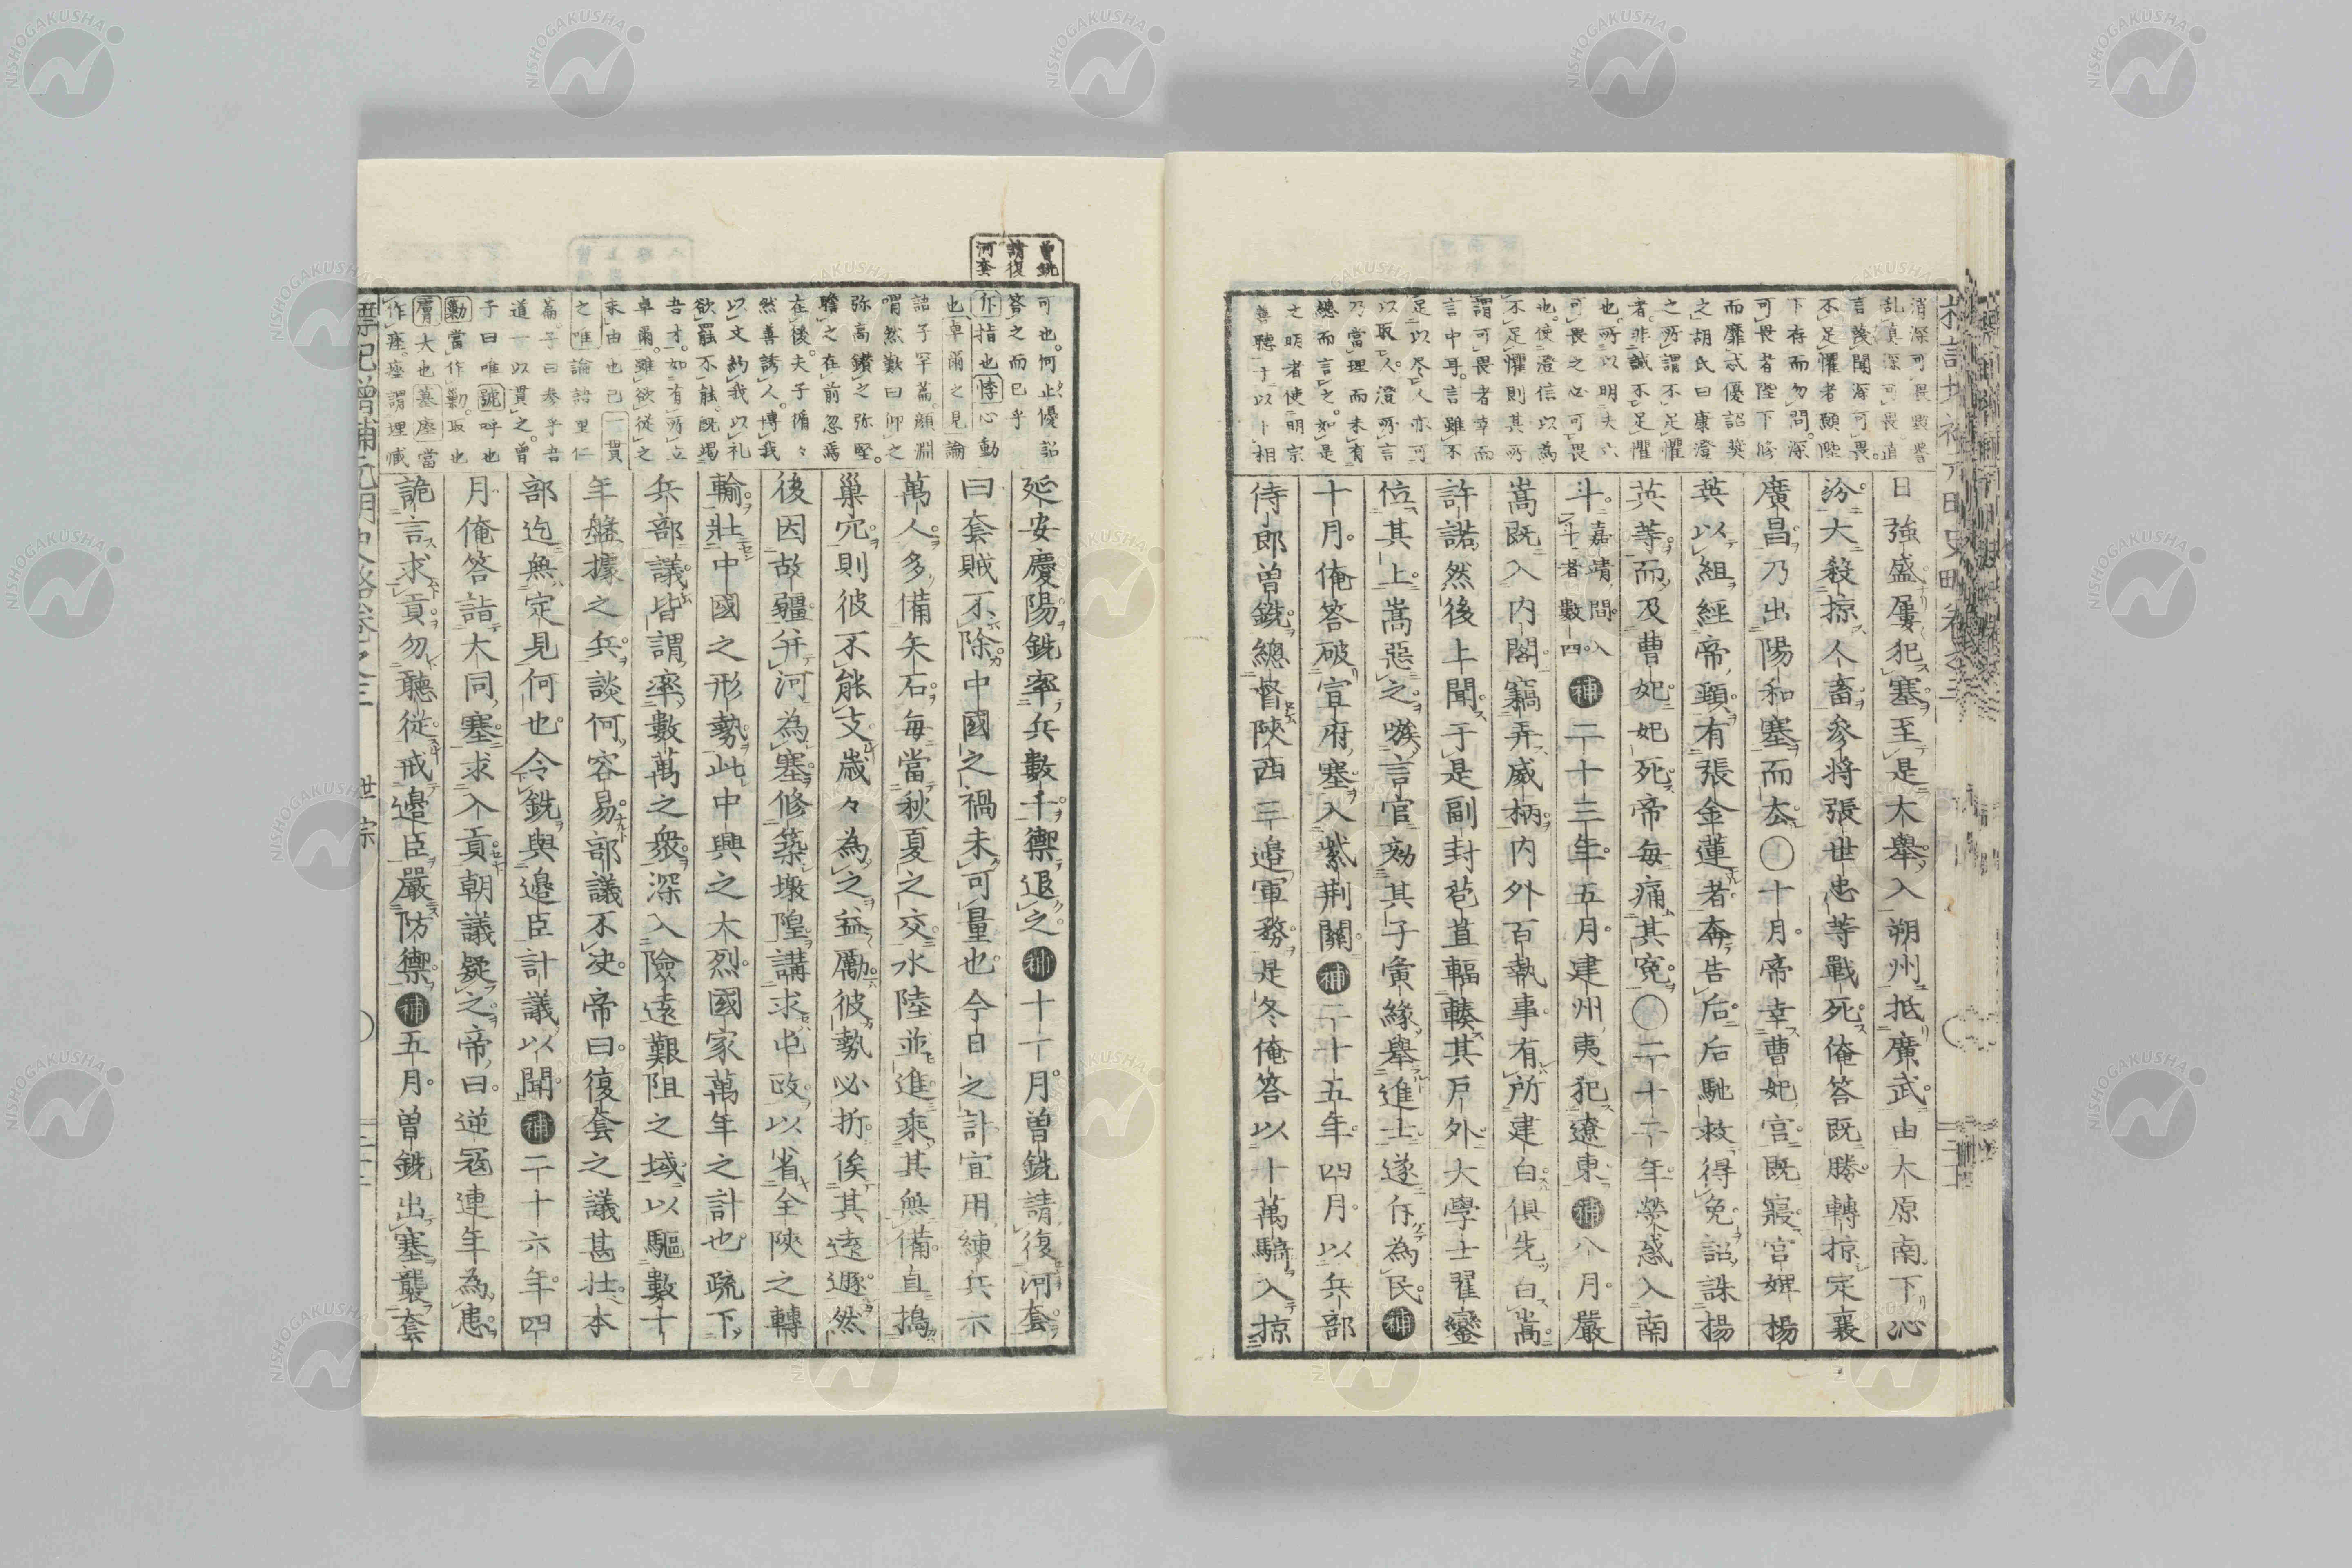 消深可畏毀譽
乱真深可畏直
言蔑聞深可畏
不足懼者願陛
下存而勿問深
可畏者陛下修
而靡忒優詔奨
之胡氏曰康澄
之所謂不足懼
者非誠不足懼
也所以明夫六
可畏之必可畏
也使澄信以為
不足懼則其所
謂可畏者幸而
言中耳言雖不
足以尽人亦可
以取人澄所言
乃當理而未有
總而言之如是
之明者使明宗
善聽于以卜相
日強盛屢犯塞至是大舉入朔州抵廣武由太原南下沁
汾大殺掠人畜參将張世忠等戰死俺答既勝轉掠定襄
廣昌乃出陽和塞而去〇十月帝幸曹妃宮既寢宮婢楊
英以組經帝頸有張金蓮者奔告后后馳救得免詔誅楊
英等而及曹妃妃死帝毎痛其冤〇二十二年熒惑入南
斗嘉靖間入
斗者數四
補二十三年五月建州夷犯遼東補八月嚴
嵩既入内閣竊弄威柄内外百執事有所建白俱先白嵩
許諾然後上聞于是副封苞苴輻輳其戸外大學士翟鑾
位其上嵩惡之嗾言官効其子夤緣舉進士遂斥為民補
十月俺答破宣府塞入紫荆關補二十五年四月以兵部
侍郎曽銑總督陝西三邉軍務是冬俺答以十萬騎入掠
曽銑
請復
河套
可也何止優詔
答之而已乎
斥指也悸心動
也卓爾之見論
語子罕篇顔淵
喟然歎曰仰之
弥高鑽之弥堅
瞻之在前忽焉
在後夫子循々
然善誘人博我
以文約我以礼
欲罷不能既竭
吾才如有所立
卓爾雖欲從之
末由也已一貫
之唯論語里仁
篇子曰參乎吾
道一以貫之曽
子曰唯號呼也
勦當作勦取也
膺大也墓座當
作座座謂埋
延安慶陽銑率兵數千禦退之補十一月曽銑請復河套
曰套賊不除中國之禍未可量也今日之計宜用練兵六
萬人多備矢石毎當秋夏之交水陸並進乘其無備直搗
巢穴則彼不能支歳々為之益勵彼勢必折俟其遠遯然
後因故疆并河為塞修築墩隍講求屯政以省全陝之轉
輸壯中國之形勢此中興之大烈國家萬年之計也疏下
兵部議皆謂率數萬之衆深入險遠艱阻之域以驅數十
年盤據之兵談何容易部議不決帝曰復套之議甚壯本
部迄無定見何也令銑與邉臣計議以聞補二十六年四
月俺答詣大同塞求入貢朝議疑之帝曰逆冦連年為患
詭言求貢勿聽從戒邉臣嚴防禦補五月曽銑出塞襲套
標記増補元明史略卷之三 世宗